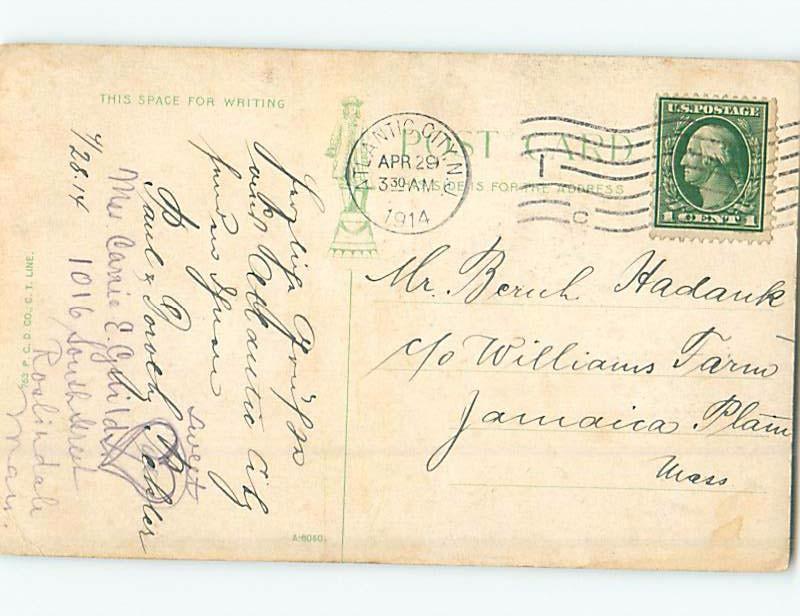 THIS SPACE FOR WRITING
POST CARD
THIS SIDE IS FOR THE ADDRESS
ATLANTIC CITY, N.J.
APR 29
3 30 AM
1914
U.S. POSTAGE
1 CENT 1
Mr. Bernh. Hadank
c/o Williams Farm
Jamaica Plain
Mass
4/28.14
Herzliche Grüsse
Atlantic City
Paul
Mrs. Carrie E.
1016 South Street
Roslindale
Mass.
Sweet
763 P. C. D CO., C. T. LINE.
A-6060